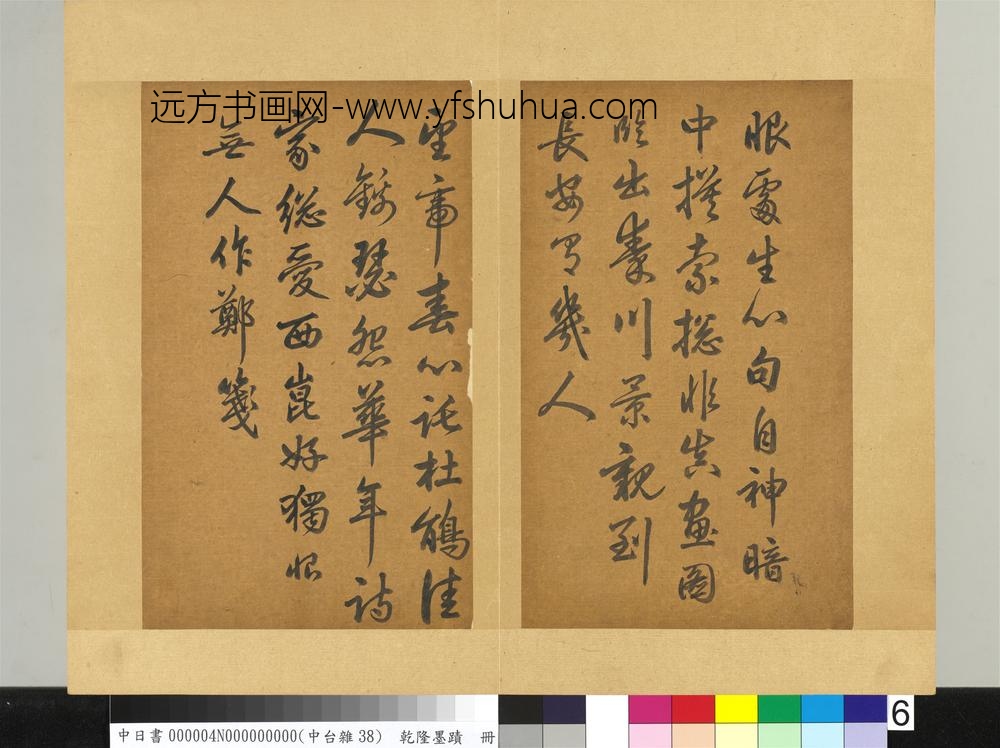 远方书画网-www.yfshuhua.com
眼處生心句自神暗
中摸索揔非真畫圖
臨出秦川景親到
長安有幾人
望帝春心託杜鵑佳
人錦瑟怨華年詩
家総愛西崑好獨恨
無人作鄭箋
中日書 000004N000000000(中台雜 38) 乾隆墨蹟 冊
6